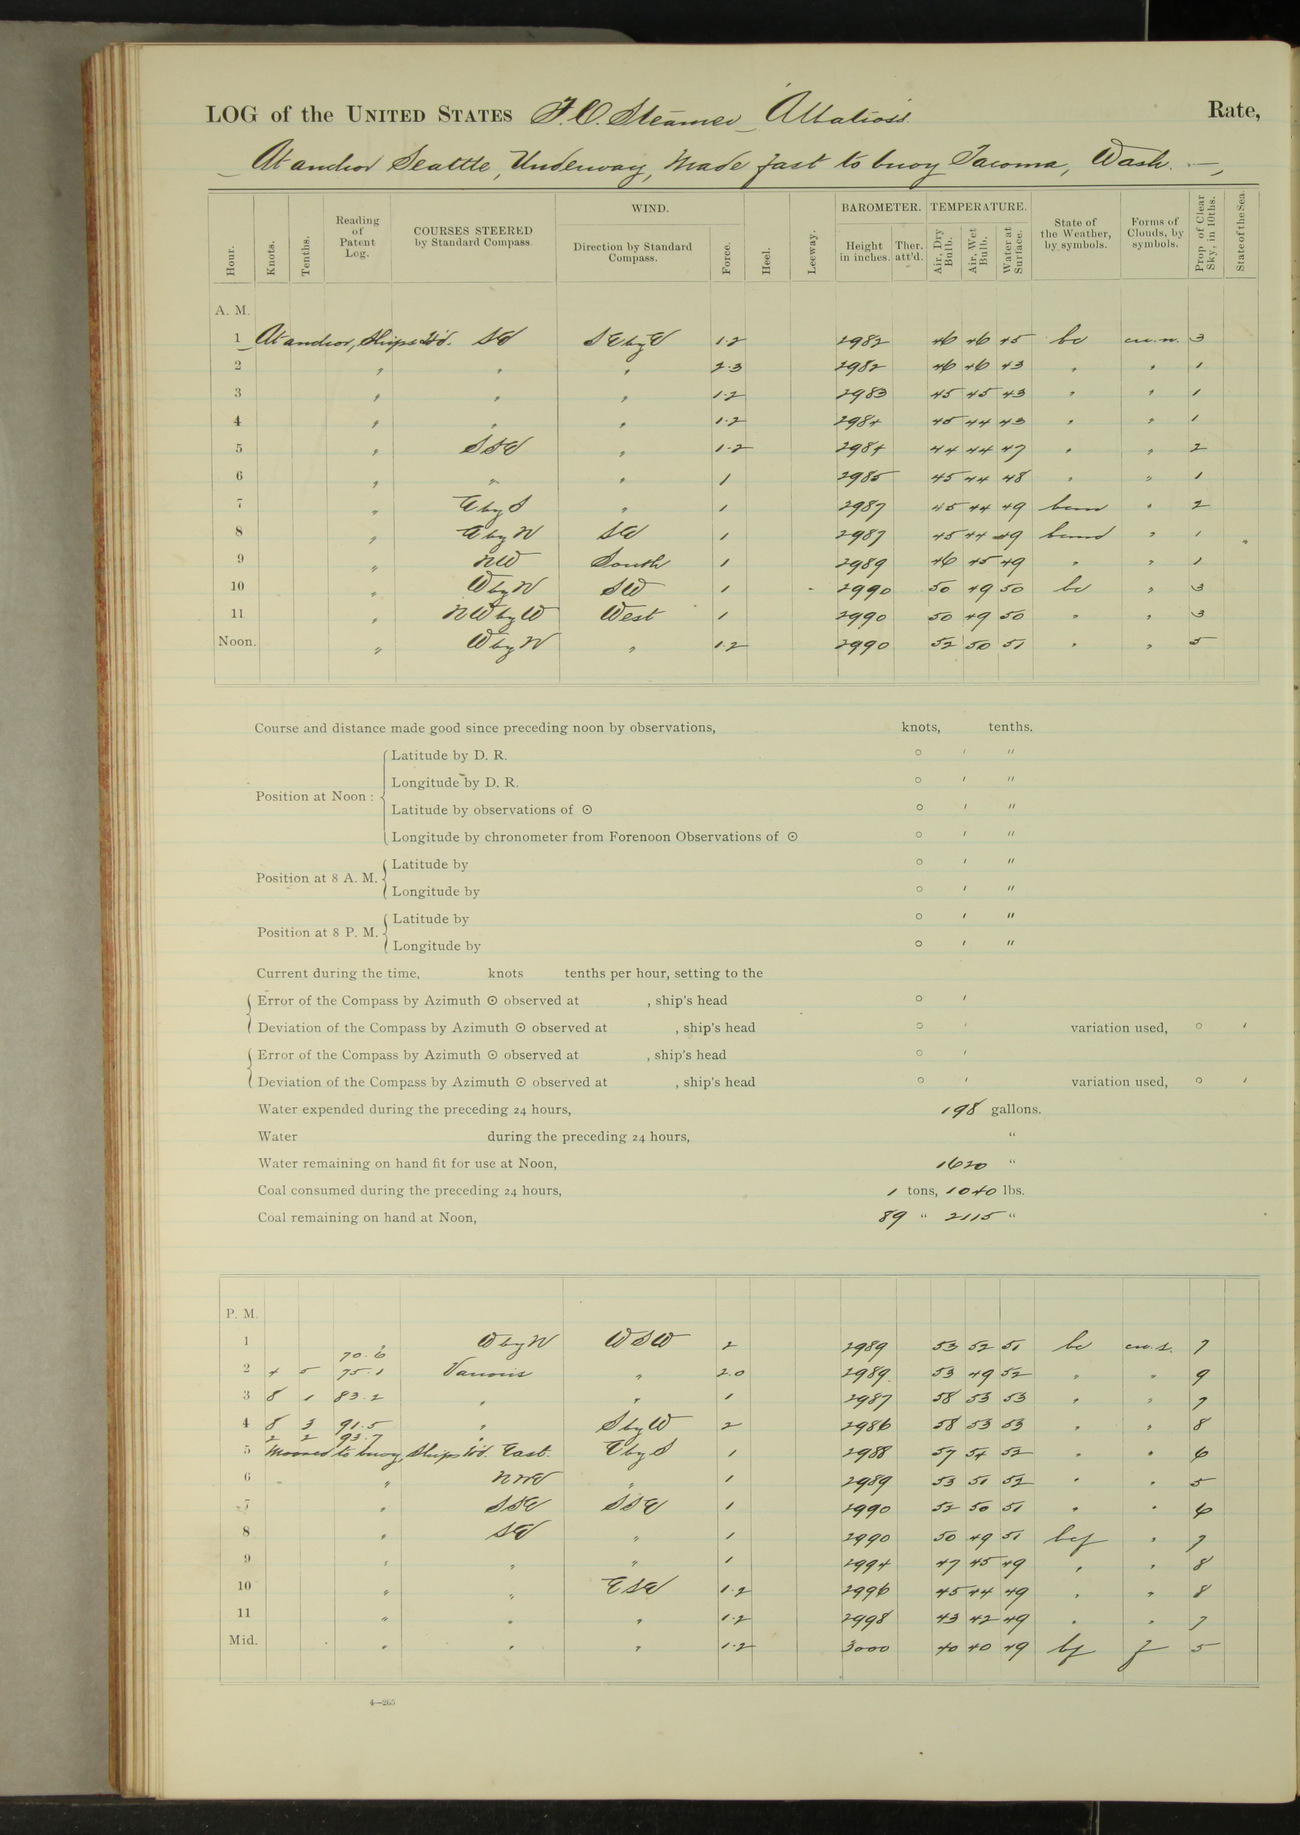 LOG of the UNITED STATES F.C. Steamer Albatross Rate,
At anchor Seattle, Underway, Made fast to buoy Tacoma, Wash.
WIND. BAROMETER. TEMPERATURE.
Hour. Knots. Tenths. Reading of Patent Log. COURSES STEERED by Standard Compass. Direction by Standard Compass. Force. Heel. Leeway. Height in inches. Ther. att'd. Air, Dry Bulb. Air, Wet Bulb. Water at Surface. State of the Weather, by symbols. Forms of Clouds, by symbols. Prop. of Clear Sky, in 10ths. State of the Sea.
A. M.
1 At anchor, Ships H'd. SE SE by E 1-2 2982 46 46 45 bc cu.n. 3
2 " " " 2-3 2982 46 46 43 " " 1
3 " " " 1-2 2983 45 45 43 " " 1
4 " " " 1-2 2984 45 44 43 " " 1
5 " SSE " 1-2 2984 44 44 47 " " 2
6 " " " 1 2985 45 44 48 " " 1
7 " E by S " 1 2987 45 44 49 bcm " 2
8 " E by N SE 1 2987 45 44 49 bcmd " 1
9 " NW South 1 2989 46 45 49 " " 1
10 " W by N SW 1 2990 50 49 50 bc " 3
11 " NW by W West 1 2990 50 49 50 " " 3
Noon. " W by N " 1-2 2990 52 50 51 " " 5
Course and distance made good since preceding noon by observations, knots, tenths.
Position at Noon : Latitude by D. R. ° ′ ″
Longitude by D. R. ° ′ ″
Latitude by observations of ☉ ° ′ ″
Longitude by chronometer from Forenoon Observations of ☉ ° ′ ″
Position at 8 A. M. Latitude by ° ′ ″
Longitude by ° ′ ″
Position at 8 P. M. Latitude by ° ′ ″
Longitude by ° ′ ″
Current during the time, knots tenths per hour, setting to the
Error of the Compass by Azimuth ☉ observed at , ship's head ° ′
Deviation of the Compass by Azimuth ☉ observed at , ship's head ° ′ variation used, ° ′
Error of the Compass by Azimuth ☉ observed at , ship's head ° ′
Deviation of the Compass by Azimuth ☉ observed at , ship's head ° ′ variation used, ° ′
Water expended during the preceding 24 hours, 198 gallons.
Water during the preceding 24 hours, "
Water remaining on hand fit for use at Noon, 1620 "
Coal consumed during the preceding 24 hours, 1 tons, 1040 lbs.
Coal remaining on hand at Noon, 89 " 2115 "
P. M.
1 W by N WSW 2 2989 53 52 51 bc cu.s. 7
70.6
2 4 5 75.1 Various " 2.0 2989 53 49 52 " " 9
3 8 1 83.2 " " 1 2987 58 53 53 " " 7
4 8 3 91.5 " S by W 2 2986 58 53 53 " " 8
2 2 93.7
5 Moored to buoy, Ships H'd. East. E by S 1 2988 57 54 52 " " 6
6 " NNE " 1 2989 53 51 52 " " 5
7 " SSE SSE 1 2990 52 50 51 " " 6
8 " SE " 1 2990 50 49 51 bcf " 7
9 " " " 1 2994 47 45 49 " " 8
10 " " ESE 1-2 2996 45 44 49 " " 8
11 " " " 1-2 2998 43 42 49 " " 7
Mid. " " " 1-2 3000 40 40 49 bf f 5
4—265